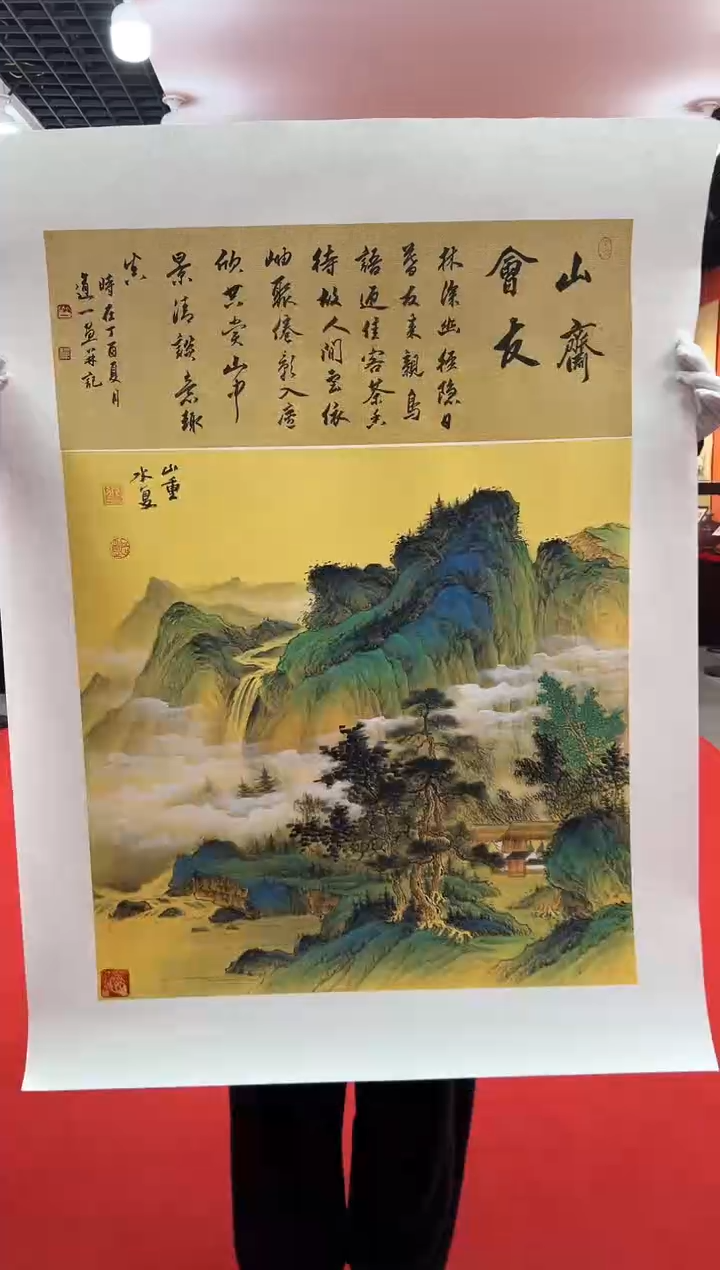 山齋
會友
林深幽徑隱日
暮友來親鳥
語迎佳客茶香
待故人閒雲依
岫聚倦影入
欣共賞山中
景清談意趣
真
時在丁酉夏月
道一畫并記
山重
水复